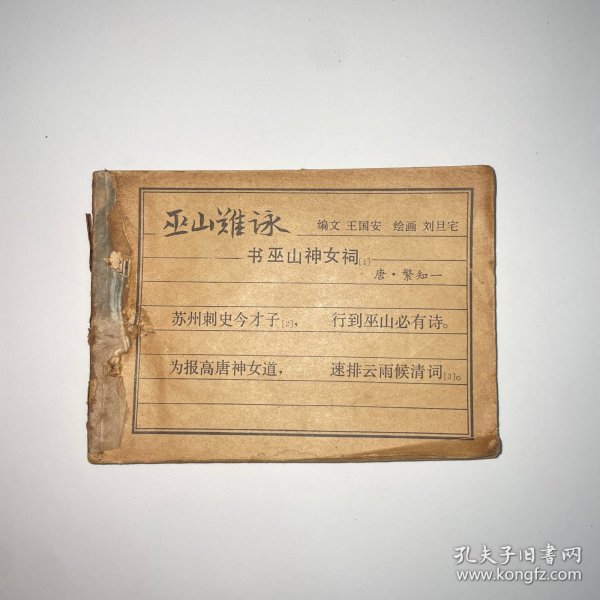 巫山难咏
编文 王国安 绘画 刘旦宅
书巫山神女祠[1]
唐·繁知一
苏州刺史今才子[2]， 行到巫山必有诗。
为报高唐神女道， 速排云雨候清词[3]。
孔夫子旧书网
www.kongfz.com